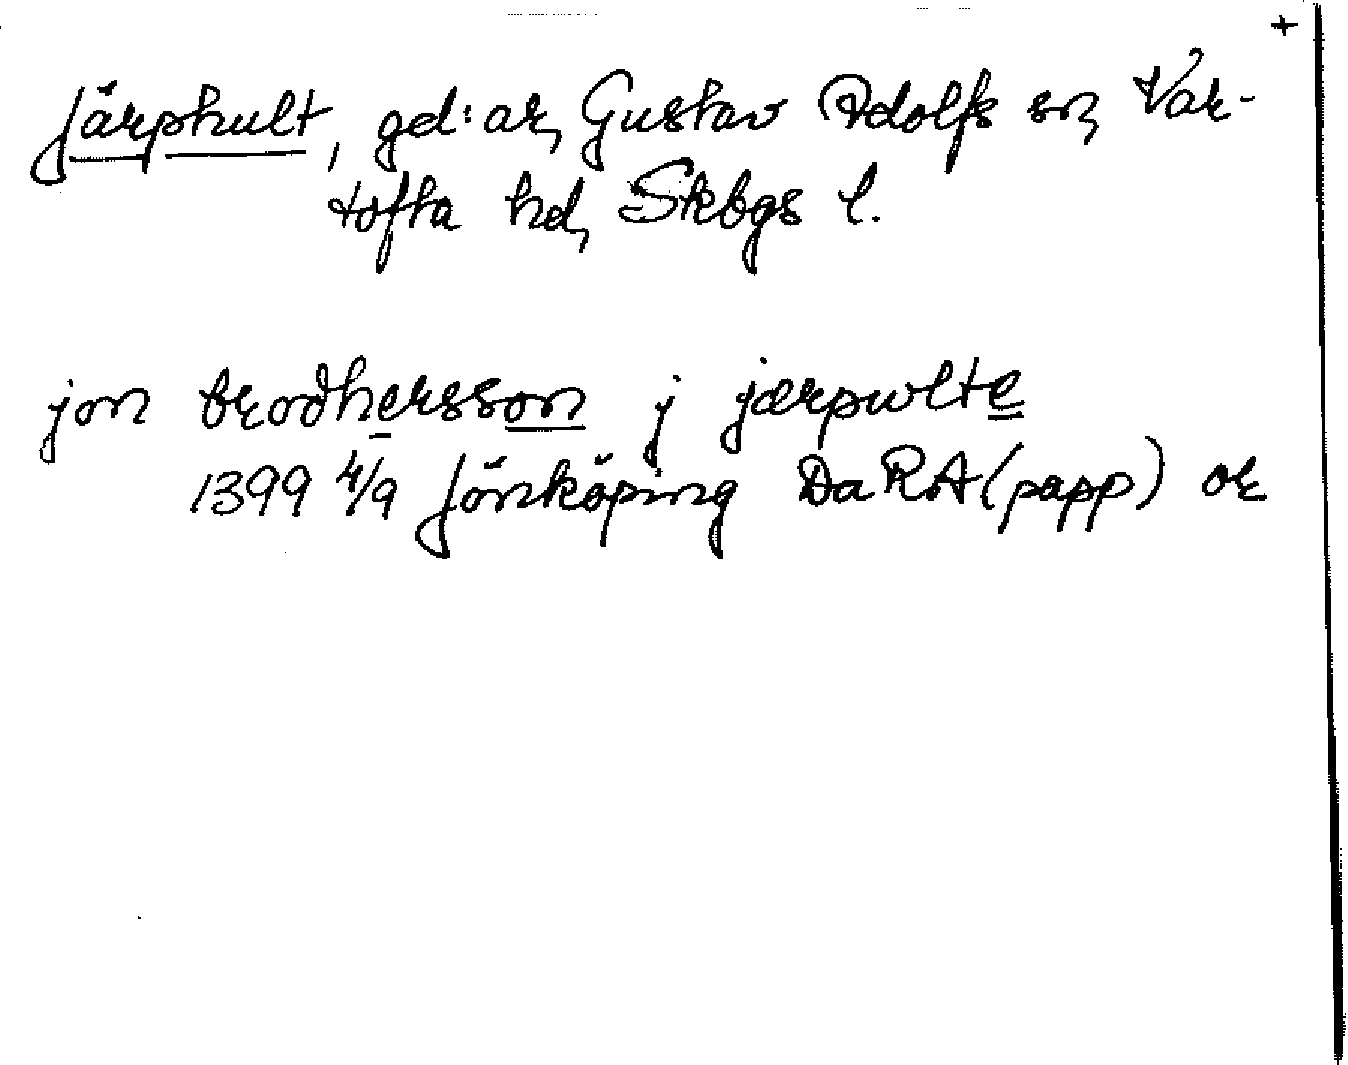 +
Järphult, gd:ar, Gustav Adolfs sn, Var-
tofta hd, Skbgs l.
jon brodhersson j jærpwlte
1399 4/9 Jönköping DaRA (papp) or